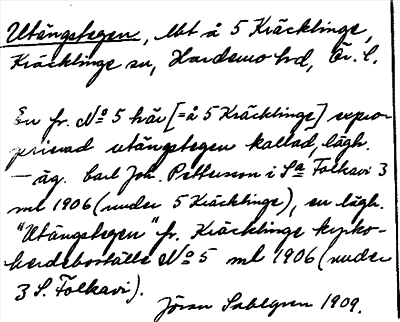 Utängstegen, lbt å 5 Kräcklinge,
Kräcklinge sn, Hardemo hd, Ör. l.
En fr. No 5 här [=å 5 Kräcklinge] expro-
prierad utängstegen kallad, lägh.
— äg. Carl Joh. Pettersson i Sa Folkavi 3
ml 1906 (under 5 Kräcklinge), en lägh.
"Utängstegen" fr. Kräcklinge kyrko-
herdeboställe No 5 ml 1906 (under
3 S. Folkavi).
Jöran Sahlgren 1909.